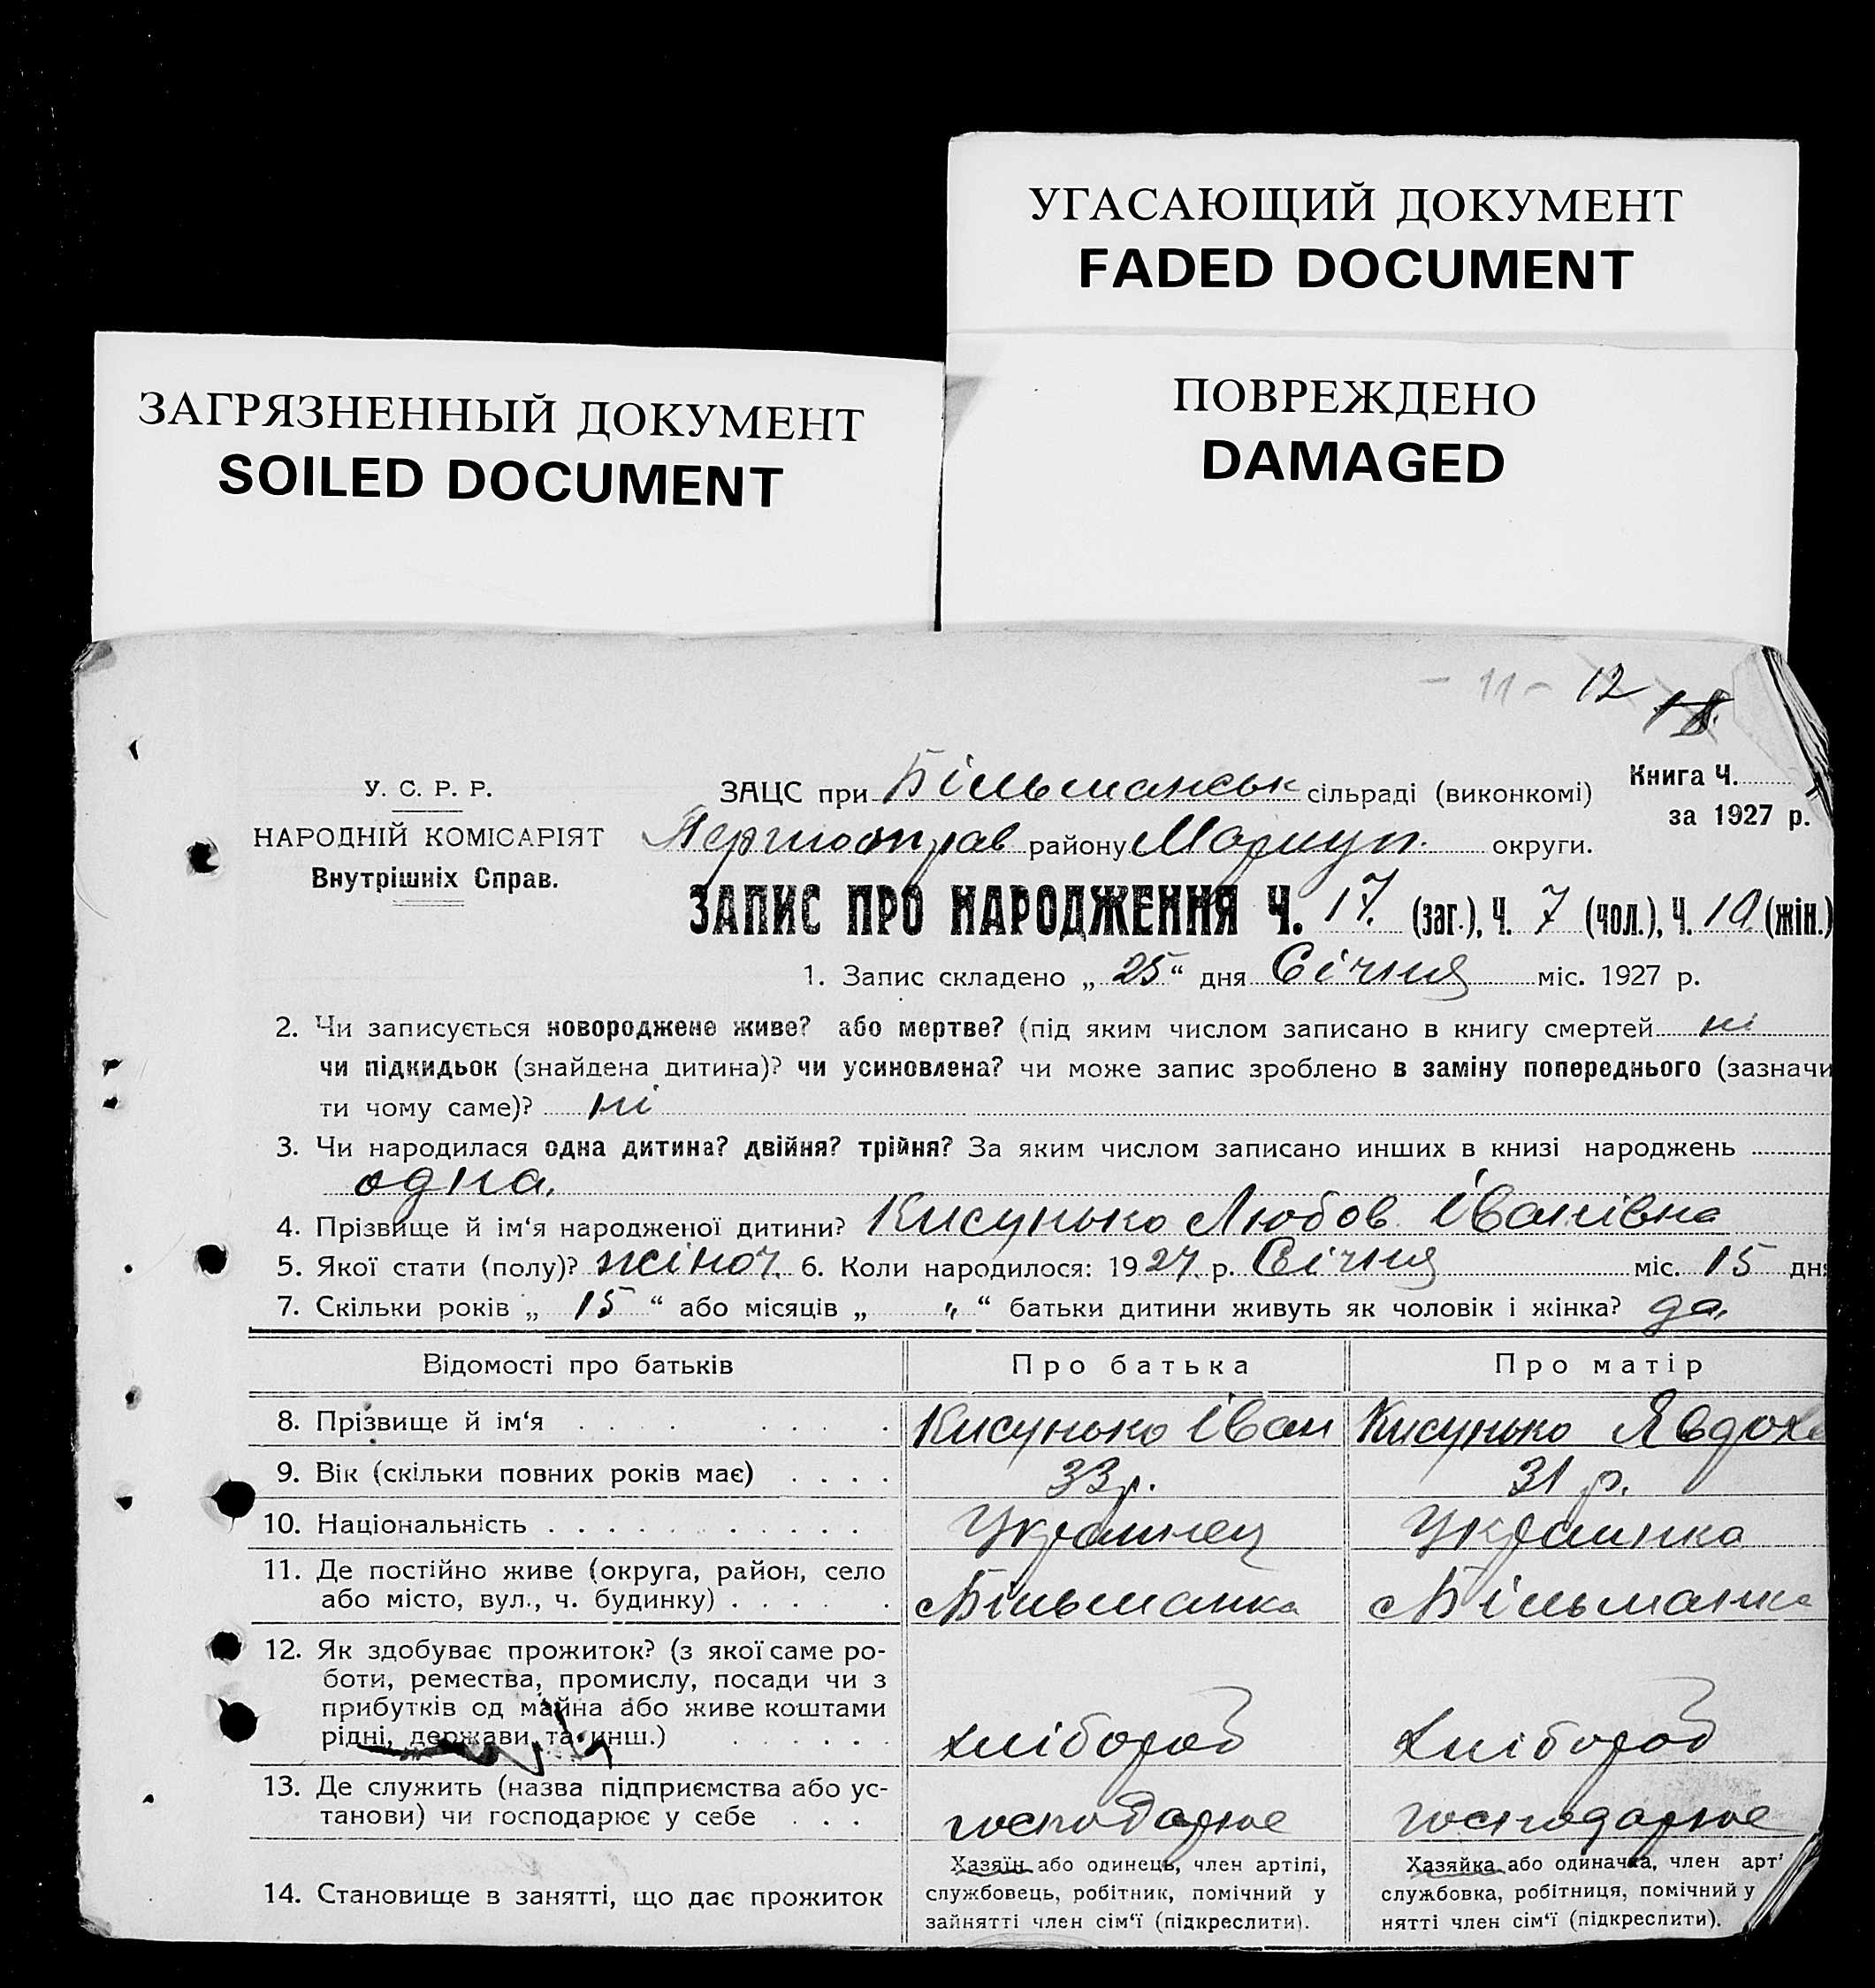 УГАСАЮЩИЙ ДОКУМЕНТ
FADED DOCUMENT
ЗАГРЯЗНЕННЫЙ ДОКУМЕНТ
SOILED DOCUMENT
ПОВРЕЖДЕНО
DAMAGED
- 11 - 12 18
У. С. Р. Р.
НАРОДНІЙ КОМІСАРІЯТ
Внутрішніх Справ.
ЗАЦС при Більманськ сільраді (виконкомі)
Книга Ч.
за 1927 р.
Першотрав району Маріуп. округи.
ЗАПИС ПРО НАРОДЖЕННЯ Ч. 17. (заг.), Ч. 7 (чол.), Ч. 10. (жін.)
1. Запис складено „ 25 “ дня Січня міс. 1927 р.
2. Чи записується новороджене живе? або мертве? (під яким числом записано в книгу смертей ні
чи підкидьок (знайдена дитина)? чи усиновлена? чи може запис зроблено в заміну попереднього (зазначи
ти чому саме)? ні
3. Чи народилася одна дитина? двійня? трійня? За яким числом записано инших в книзі народжень
одна.
4. Прізвище й ім‘я народженої дитини? Кисунько Любов Іванівна
5. Якої стати (полу)? жіноч. 6. Коли народилося: 1927. р. Січня міс. 15 дня
7. Скільки років „ 15 “ або місяців „ „ “ батьки дитини живуть як чоловік і жінка? да.
Відомості про батьків Про батька Про матір
8. Прізвище й ім‘я Кисунько Іван Кисунько Явдоха
9. Вік (скільки повних років має) 33 р. 31 р.
10. Національність Украинец Украинка
11. Де постійно живе (округа, район, село
або місто, вул., ч. будинку) Більманка Більманка
12. Як здобуває прожиток? (з якої саме ро-
боти, ремества, промислу, посади чи з
прибутків од майна або живе коштами
рідні, держави та инш.) хлібороб хлібороб
13. Де служить (назва підприємства або ус-
танови) чи господарює у себе господарює господарює
14. Становище в занятті, що дає прожиток
Хазяїн або одинець, член артілі,
службовець, робітник, помічний у
зайнятті член сім‘ї (підкреслити).
Хазяйка або одиначка, член арт
службовка, робітниця, помічний у
нятті член сім‘ї (підкреслити).